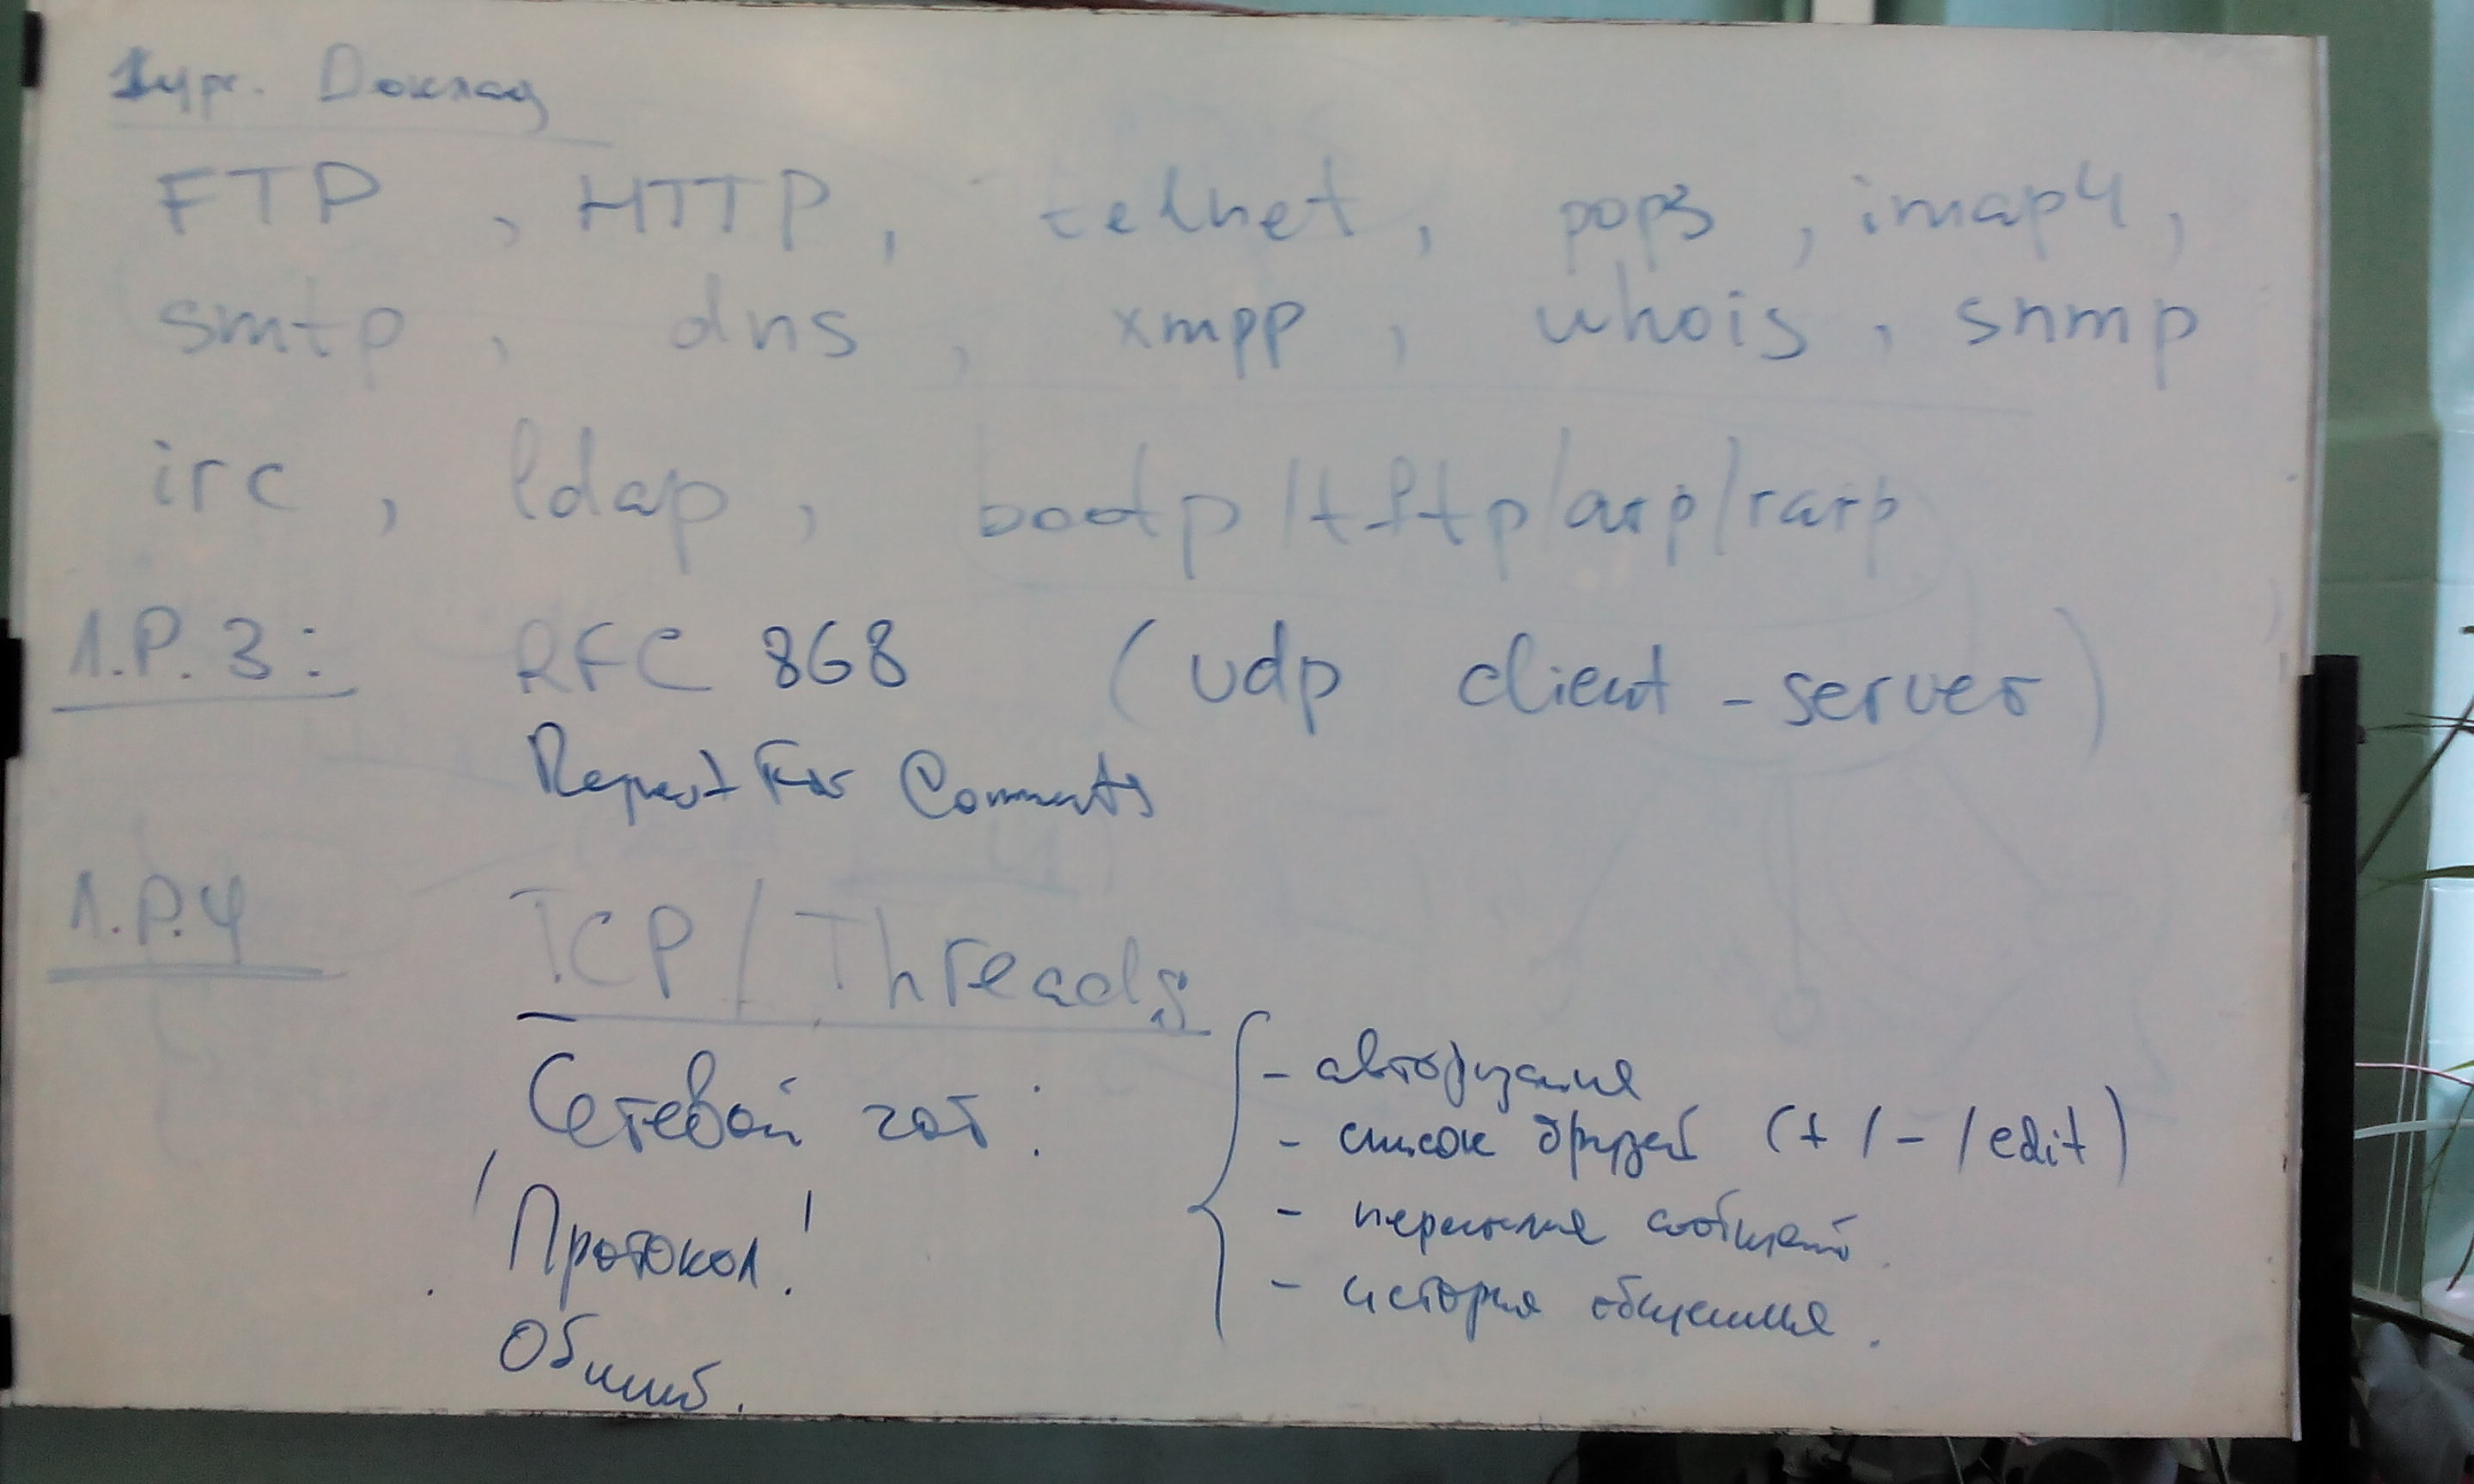 Курс. Доклад
FTP , HTTP , telnet , pop3 , imap4 ,
smtp , dns , xmpp , whois , snmp
irc , ldap , bootp/tftp/arp/rarp
Л.Р.3: RFC 868 (udp client - server)
Request For Comments
Л.Р.4 TCP / Threads
Сетевой чат :
! Протокол !
- авторизация
- список друзей (+ / - / edit)
- пересылка сообщений
- история общения.